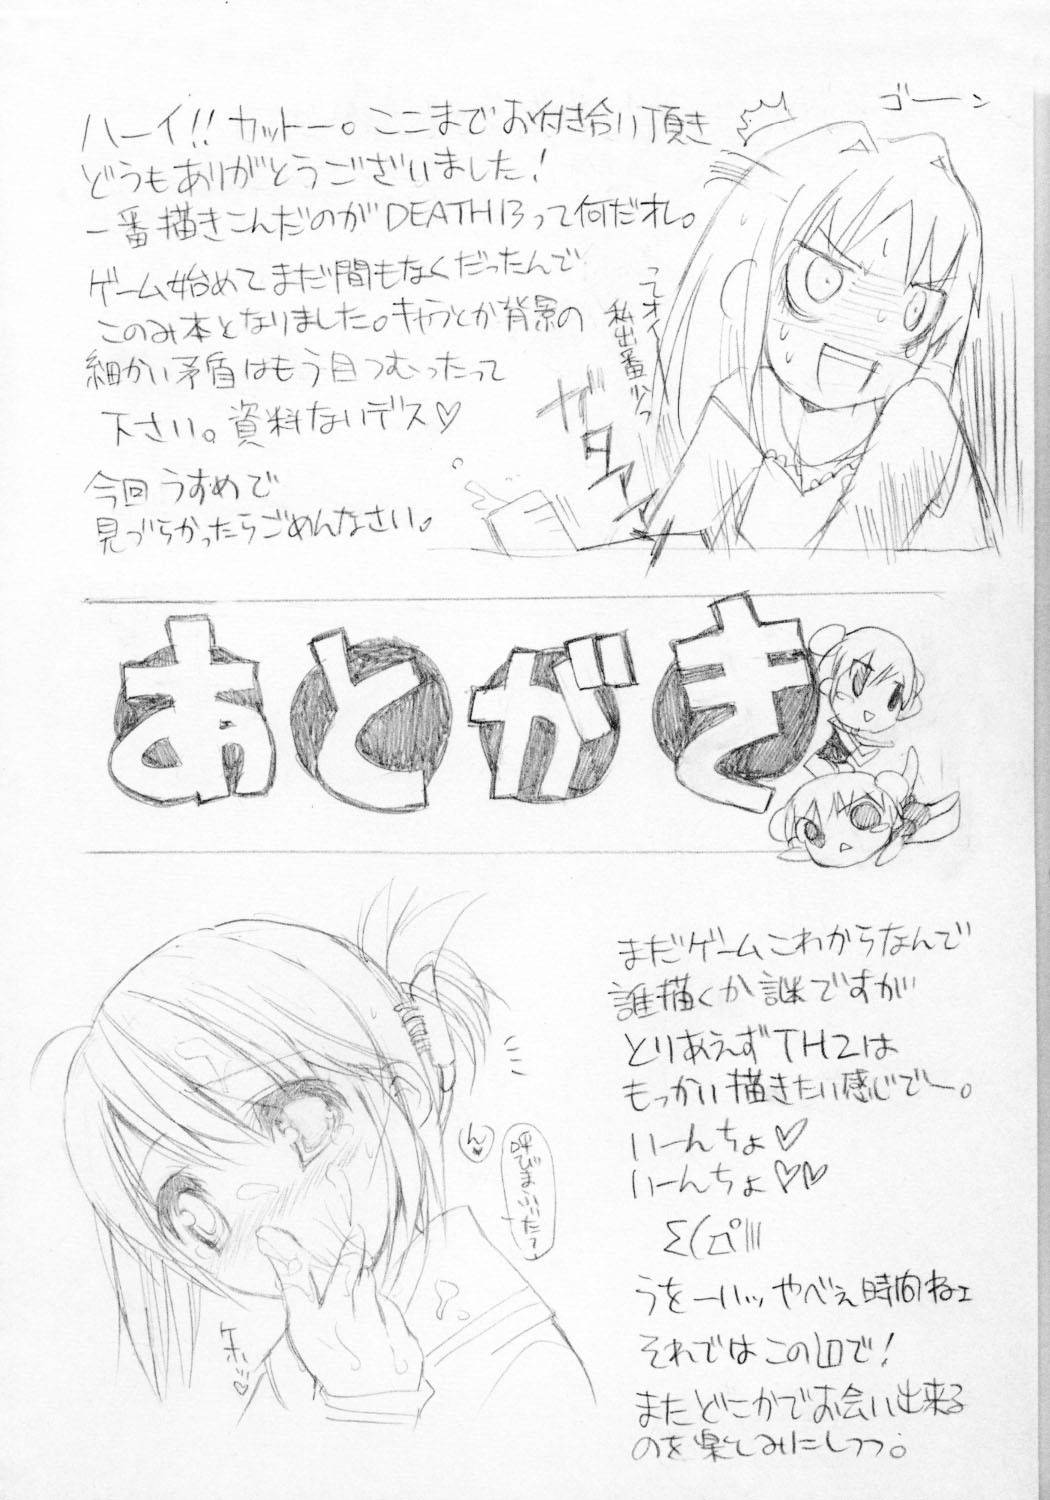 ハーイ!!カットー。ここまでお付き合い頂き
どうもありがとうございました!
一番描きこんだのがDEATH13って何だオレ。
ゲーム始めてまだ間もなくだったんで
このみ本となりました。キャラとか背景の
細かい矛盾はもう目つむったって
下さい。資料ないデス♡
今回うすめで
見づらかったらごめんなさい。
ゴーン
ってオイ
私出番少っ
ガタァン
あとがき
まだゲームこれからなんで
誰描くか謎ですが
とりあえずTH2は
もっかい描きたい感じでー。
いーんちょ♡
いーんちょ♡♡
Σ(ロ゚|||
うをーハッやべぇ時間ねェ
それではこの辺で!
またどこかでお会い出来る
のを楽しみにしつつ。
ん♡
呼びました?